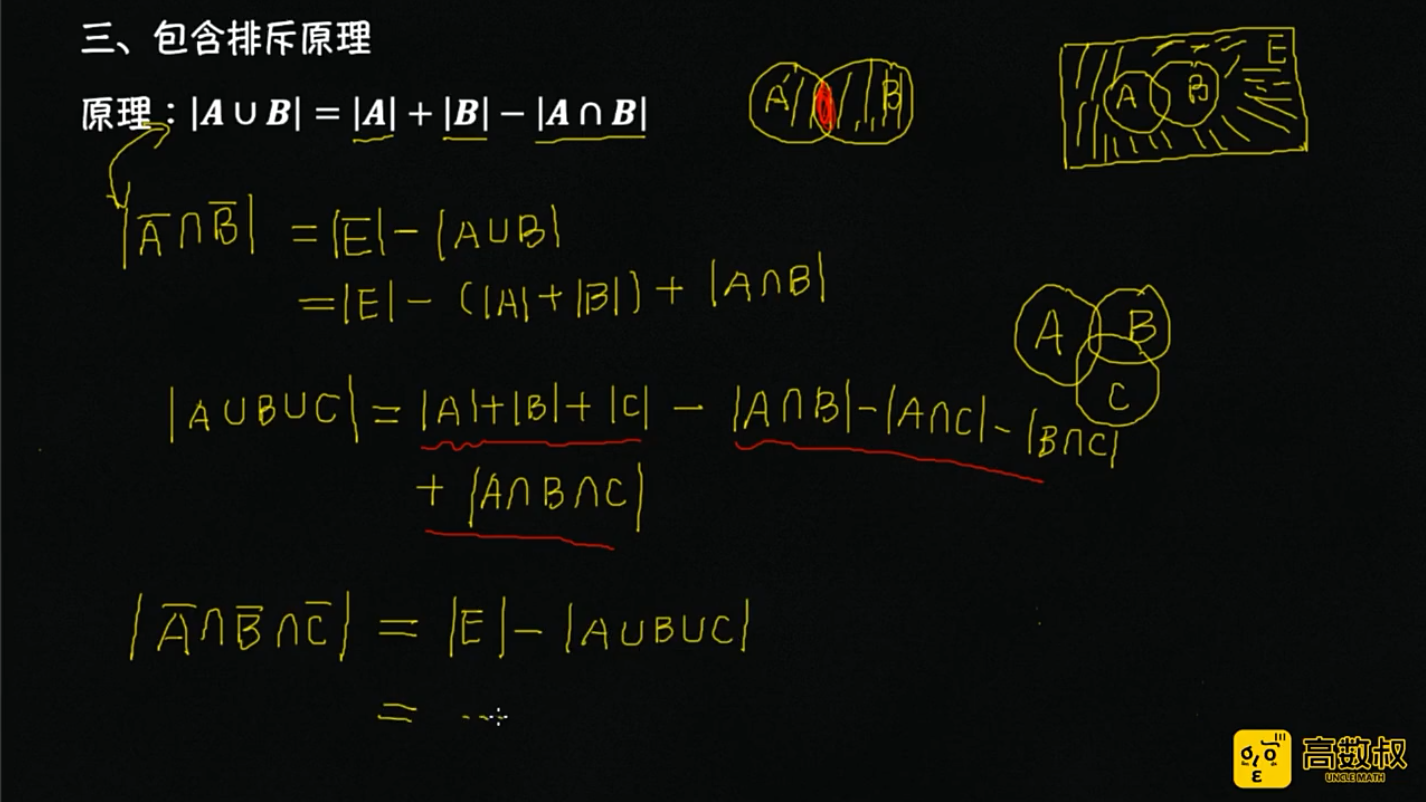 三、包含排斥原理
原理：|A ∪ B| = |A| + |B| − |A ∩ B|
A B
A B E
|A̅∩B̅| = |E| − |A∪B|
= |E| − (|A|+|B|) + |A∩B|
A B
C
|A∪B∪C| = |A|+|B|+|C| − |A∩B|−|A∩C|−|B∩C|
+ |A∩B∩C|
|A̅∩B̅∩C̅| = |E| − |A∪B∪C|
= ...
高数叔
UNCLE MATH